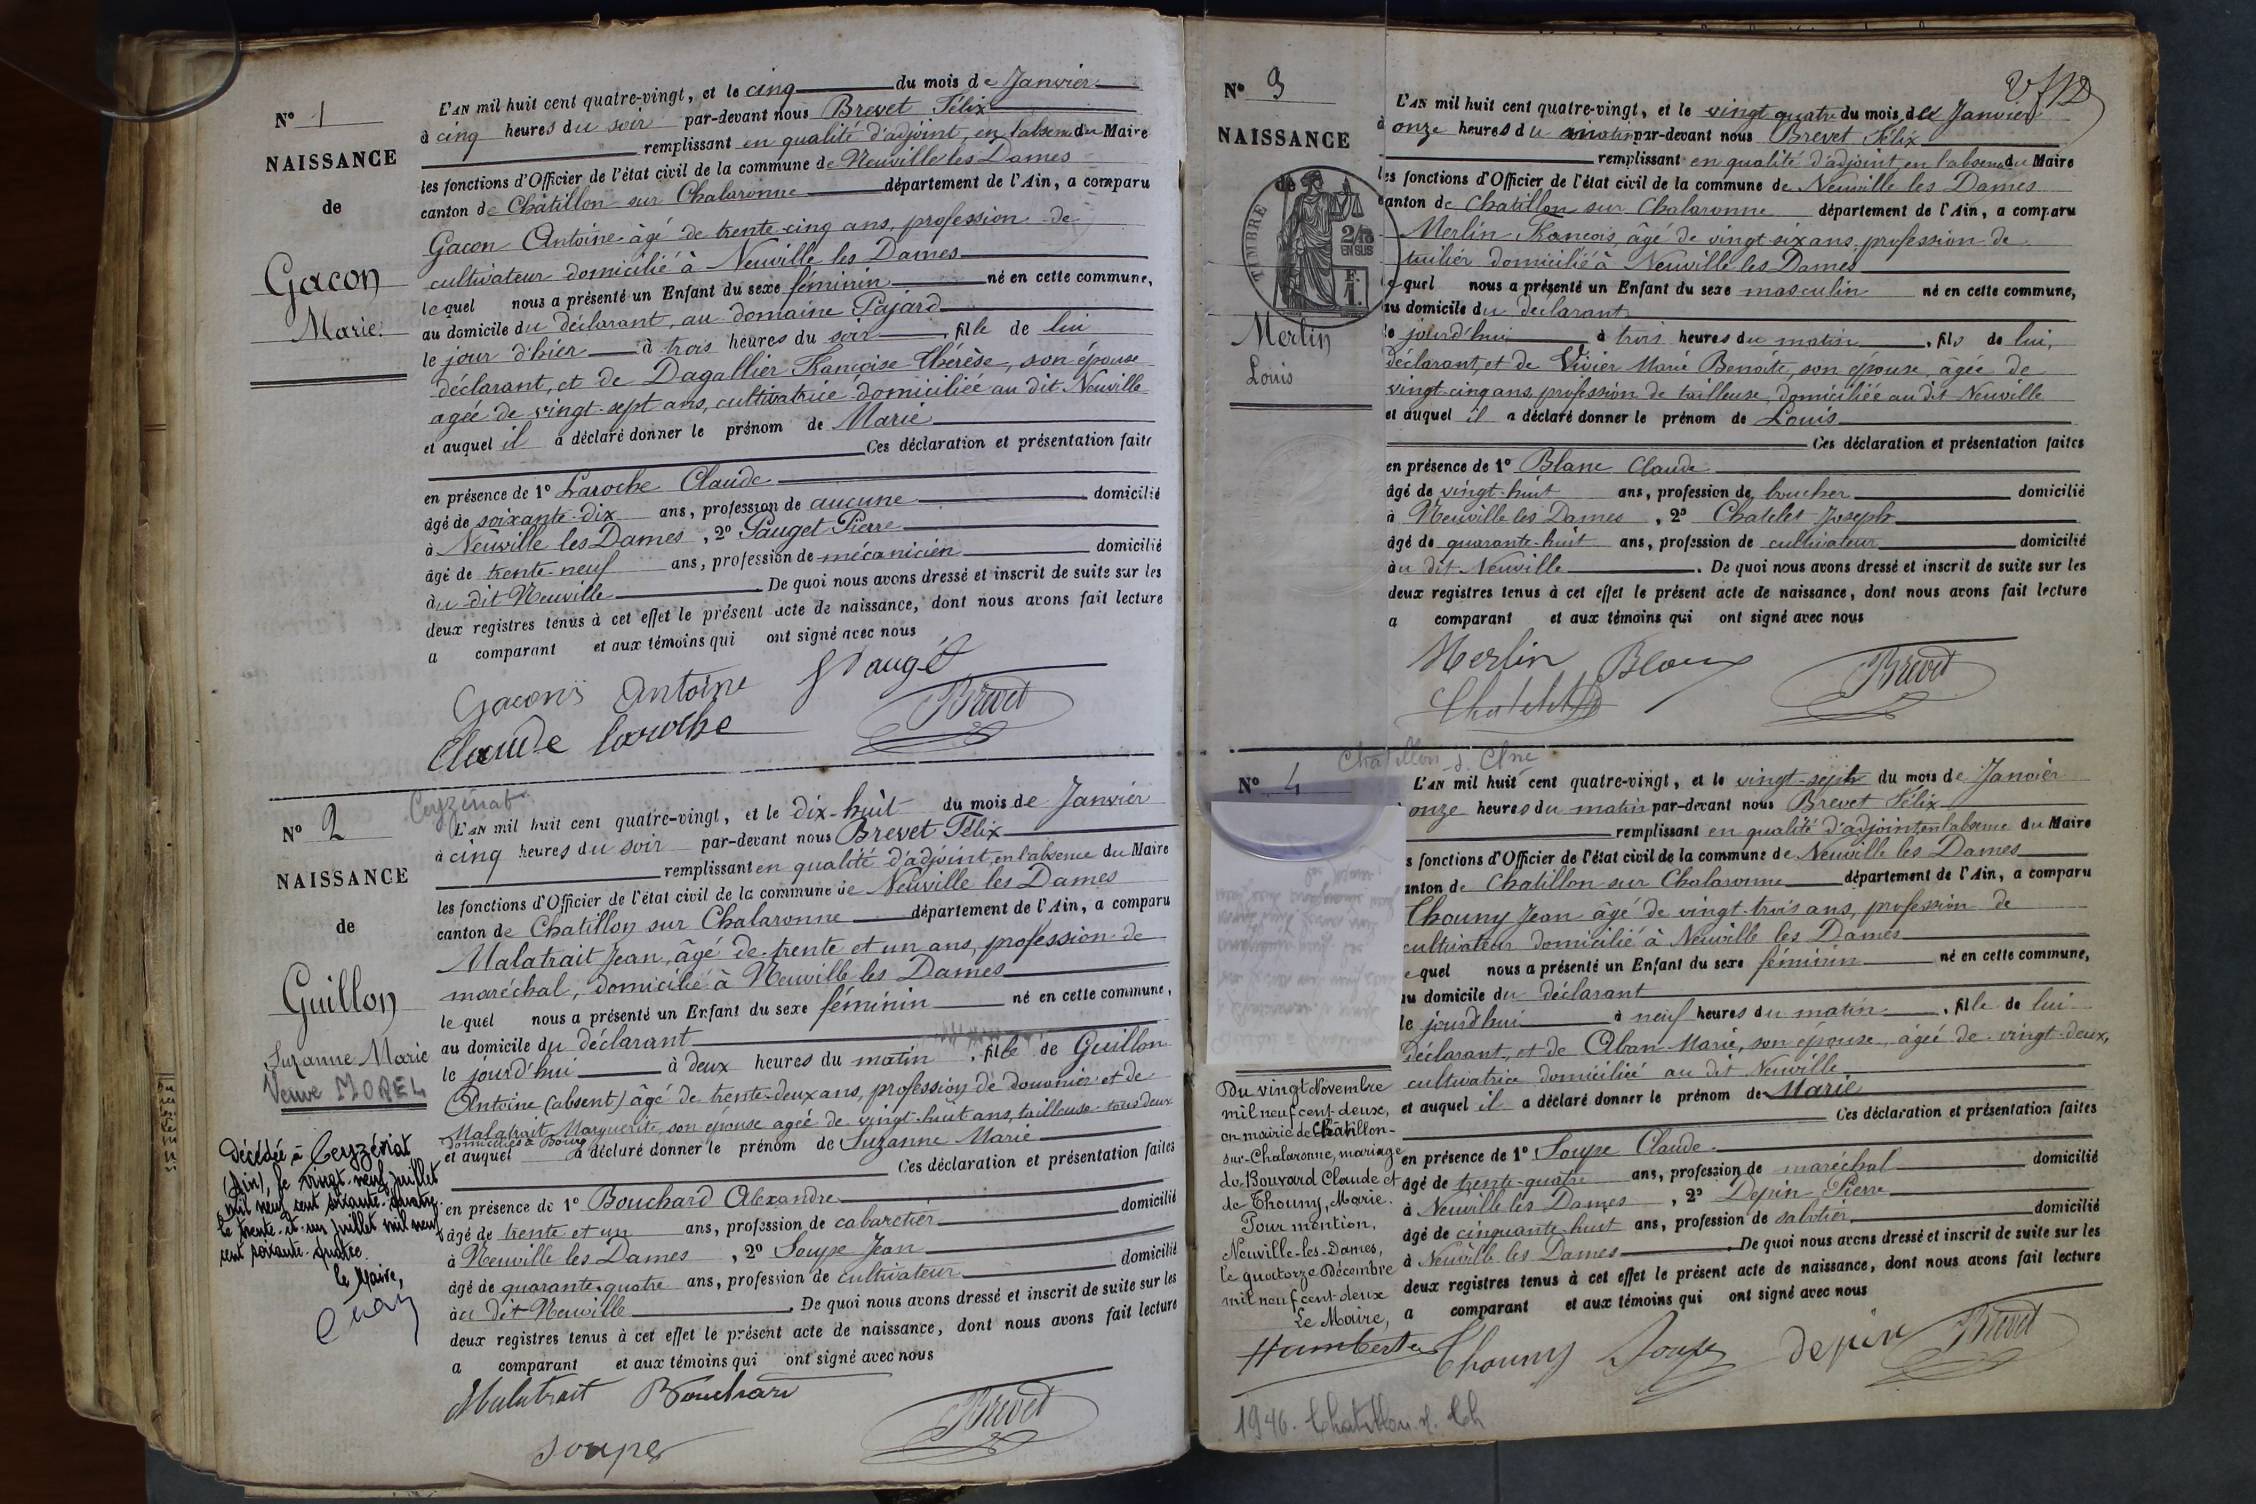 N° 1
NAISSANCE
de
Gacon
Marie
L'AN mil huit cent quatre-vingt, et le cinq du mois de Janvier
à cinq heures du soir par-devant nous Brevet Félix
remplissant en qualité d'adjoint, en l'absence du Maire
les fonctions d'Officier de l'état civil de la commune de Neuville les Dames
canton de Châtillon sur Chalaronne département de l'Ain, a comparu
Gacon Antoine âgé de trente-cinq ans, profession de
cultivateur domicilié à Neuville les Dames
lequel nous a présenté un Enfant du sexe féminin né en cette commune,
au domicile du déclarant, au domaine Pajard
le jour d'hier à trois heures du soir, fille de lui
déclarant, et de Dagallier Françoise Thérèse, son épouse
agée de vingt-sept ans, cultivatrice domiciliée au dit Neuville
et auquel il a déclaré donner le prénom de Marie
Ces déclaration et présentation faite
en présence de 1° Laroche Claude
âgé de soixante-dix ans, profession de aucune domicilié
à Neuville les Dames, 2° Pauget Pierre
âgé de trente-neuf ans, profession de mécanicien domicilié
au dit Neuville. De quoi nous avons dressé et inscrit de suite sur les
deux registres tenus à cet effet le présent acte de naissance, dont nous avons fait lecture
a comparant et aux témoins qui ont signé avec nous
Gacon Antoine
Claude Laroche
Brevet
N° 2
Ceyzériat
NAISSANCE
de
Guillon
Suzanne Marie
Veuve MOREL
Décédée à Ceyzériat
(Ain), le vingt-neuf juillet
mil neuf cent soixante-quatre.
Le trente-et-un juillet mil neuf
cent soixante-quatre.
Le Maire,
L'AN mil huit cent quatre-vingt, et le dix-huit du mois de Janvier
à cinq heures du soir par-devant nous Brevet Félix
remplissant en qualité d'adjoint, en l'absence du Maire
les fonctions d'Officier de l'état civil de la commune de Neuville les Dames
canton de Chatillon sur Chalaronne département de l'Ain, a comparu
Malatrait Jean, âgé de trente et un ans, profession de
maréchal, domicilié à Neuville les Dames
lequel nous a présenté un Enfant du sexe féminin né en cette commune,
au domicile du déclarant
le jourd'hui à deux heures du matin, fille de Guillon
Antoine (absent) âgé de trente-deux ans, profession de douanier et de
Malatrait Marguerite, son épouse agée de vingt-huit ans, tailleuse tous deux
domiciliés à Bourg
et auquel a déclaré donner le prénom de Suzanne Marie
Ces déclaration et présentation faites
en présence de 1° Bouchard Alexandre
âgé de trente et un ans, profession de cabaretier domicilié
à Neuville les Dames, 2° Soupe Jean
âgé de quarante-quatre ans, profession de cultivateur domicilié
au dit Neuville. De quoi nous avons dressé et inscrit de suite sur les
deux registres tenus à cet effet le présent acte de naissance, dont nous avons fait lecture
a comparant et aux témoins qui ont signé avec nous
Malatrait Bouchard
Brevet
Soupe
N° 3
NAISSANCE
de
TIMBRE
2/10
EN SUS
F.
1.
Merlin
Louis
L'AN mil huit cent quatre-vingt, et le vingt quatre du mois de Janvier
à onze heures du matin par-devant nous Brevet Félix
remplissant en qualité d'adjoint, en l'absence du Maire
les fonctions d'Officier de l'état civil de la commune de Neuville les Dames
canton de Chatillon sur Chalaronne département de l'Ain, a comparu
Merlin François, âgé de vingt-six ans profession de
tuilier domicilié à Neuville les Dames
lequel nous a présenté un Enfant du sexe masculin né en cette commune,
au domicile du déclarant
le jourd'hui à trois heures du matin, fils de lui,
déclarant, et de Vivier Marie Benoite, son épouse, âgée de
vingt-cinq ans, profession de tailleuse, domiciliée au dit Neuville
et auquel il a déclaré donner le prénom de Louis
Ces déclaration et présentation faites
en présence de 1° Blanc Claude
âgé de vingt-huit ans, profession de boucher domicilié
à Neuville les Dames, 2° Chatelet Joseph
âgé de quarante-huit ans, profession de cultivateur domicilié
au dit Neuville. De quoi nous avons dressé et inscrit de suite sur les
deux registres tenus à cet effet le présent acte de naissance, dont nous avons fait lecture
a comparant et aux témoins qui ont signé avec nous
Merlin Blanc
Chatelet
Brevet
Chatillon s. Chne
N° 4
Du vingt Novembre
mil neuf cent deux,
en mairie de Châtillon-
sur-Chalaronne, mariage
de Bouvard Claude et
de Thouny, Marie.
Pour mention,
Neuville-les-Dames,
le quatorze Décembre
mil neuf cent deux
Le Maire,
L'AN mil huit cent quatre-vingt, et le vingt-sept du mois de Janvier
onze heures du matin par-devant nous Brevet Félix
remplissant en qualité d'adjoint en l'absence du Maire
s fonctions d'Officier de l'état civil de la commune de Neuville les Dames
anton de Chatillon sur Chalaronne département de l'Ain, a comparu
Thouny Jean âgé de vingt-trois ans, profession de
cultivateur domicilié à Neuville les Dames
equel nous a présenté un Enfant du sexe féminin né en cette commune,
au domicile du déclarant
le jourd'hui à neuf heures du matin, fille de lui
déclarant, et de Aban Marie, son épouse, âgée de vingt-deux,
cultivatrice domiciliée au dit Neuville
et auquel il a déclaré donner le prénom de Marie
Ces déclaration et présentation faites
en présence de 1° Soupe Claude
âgé de trente-quatre ans, profession de maréchal domicilié
à Neuville les Dames, 2° Depin Pierre
âgé de cinquante-huit ans, profession de sabotier domicilié
à Neuville les Dames. De quoi nous avons dressé et inscrit de suite sur les
deux registres tenus à cet effet le présent acte de naissance, dont nous avons fait lecture
a comparant et aux témoins qui ont signé avec nous
Thouny Soupe depin Brevet
1946. Chatillon s. Ch